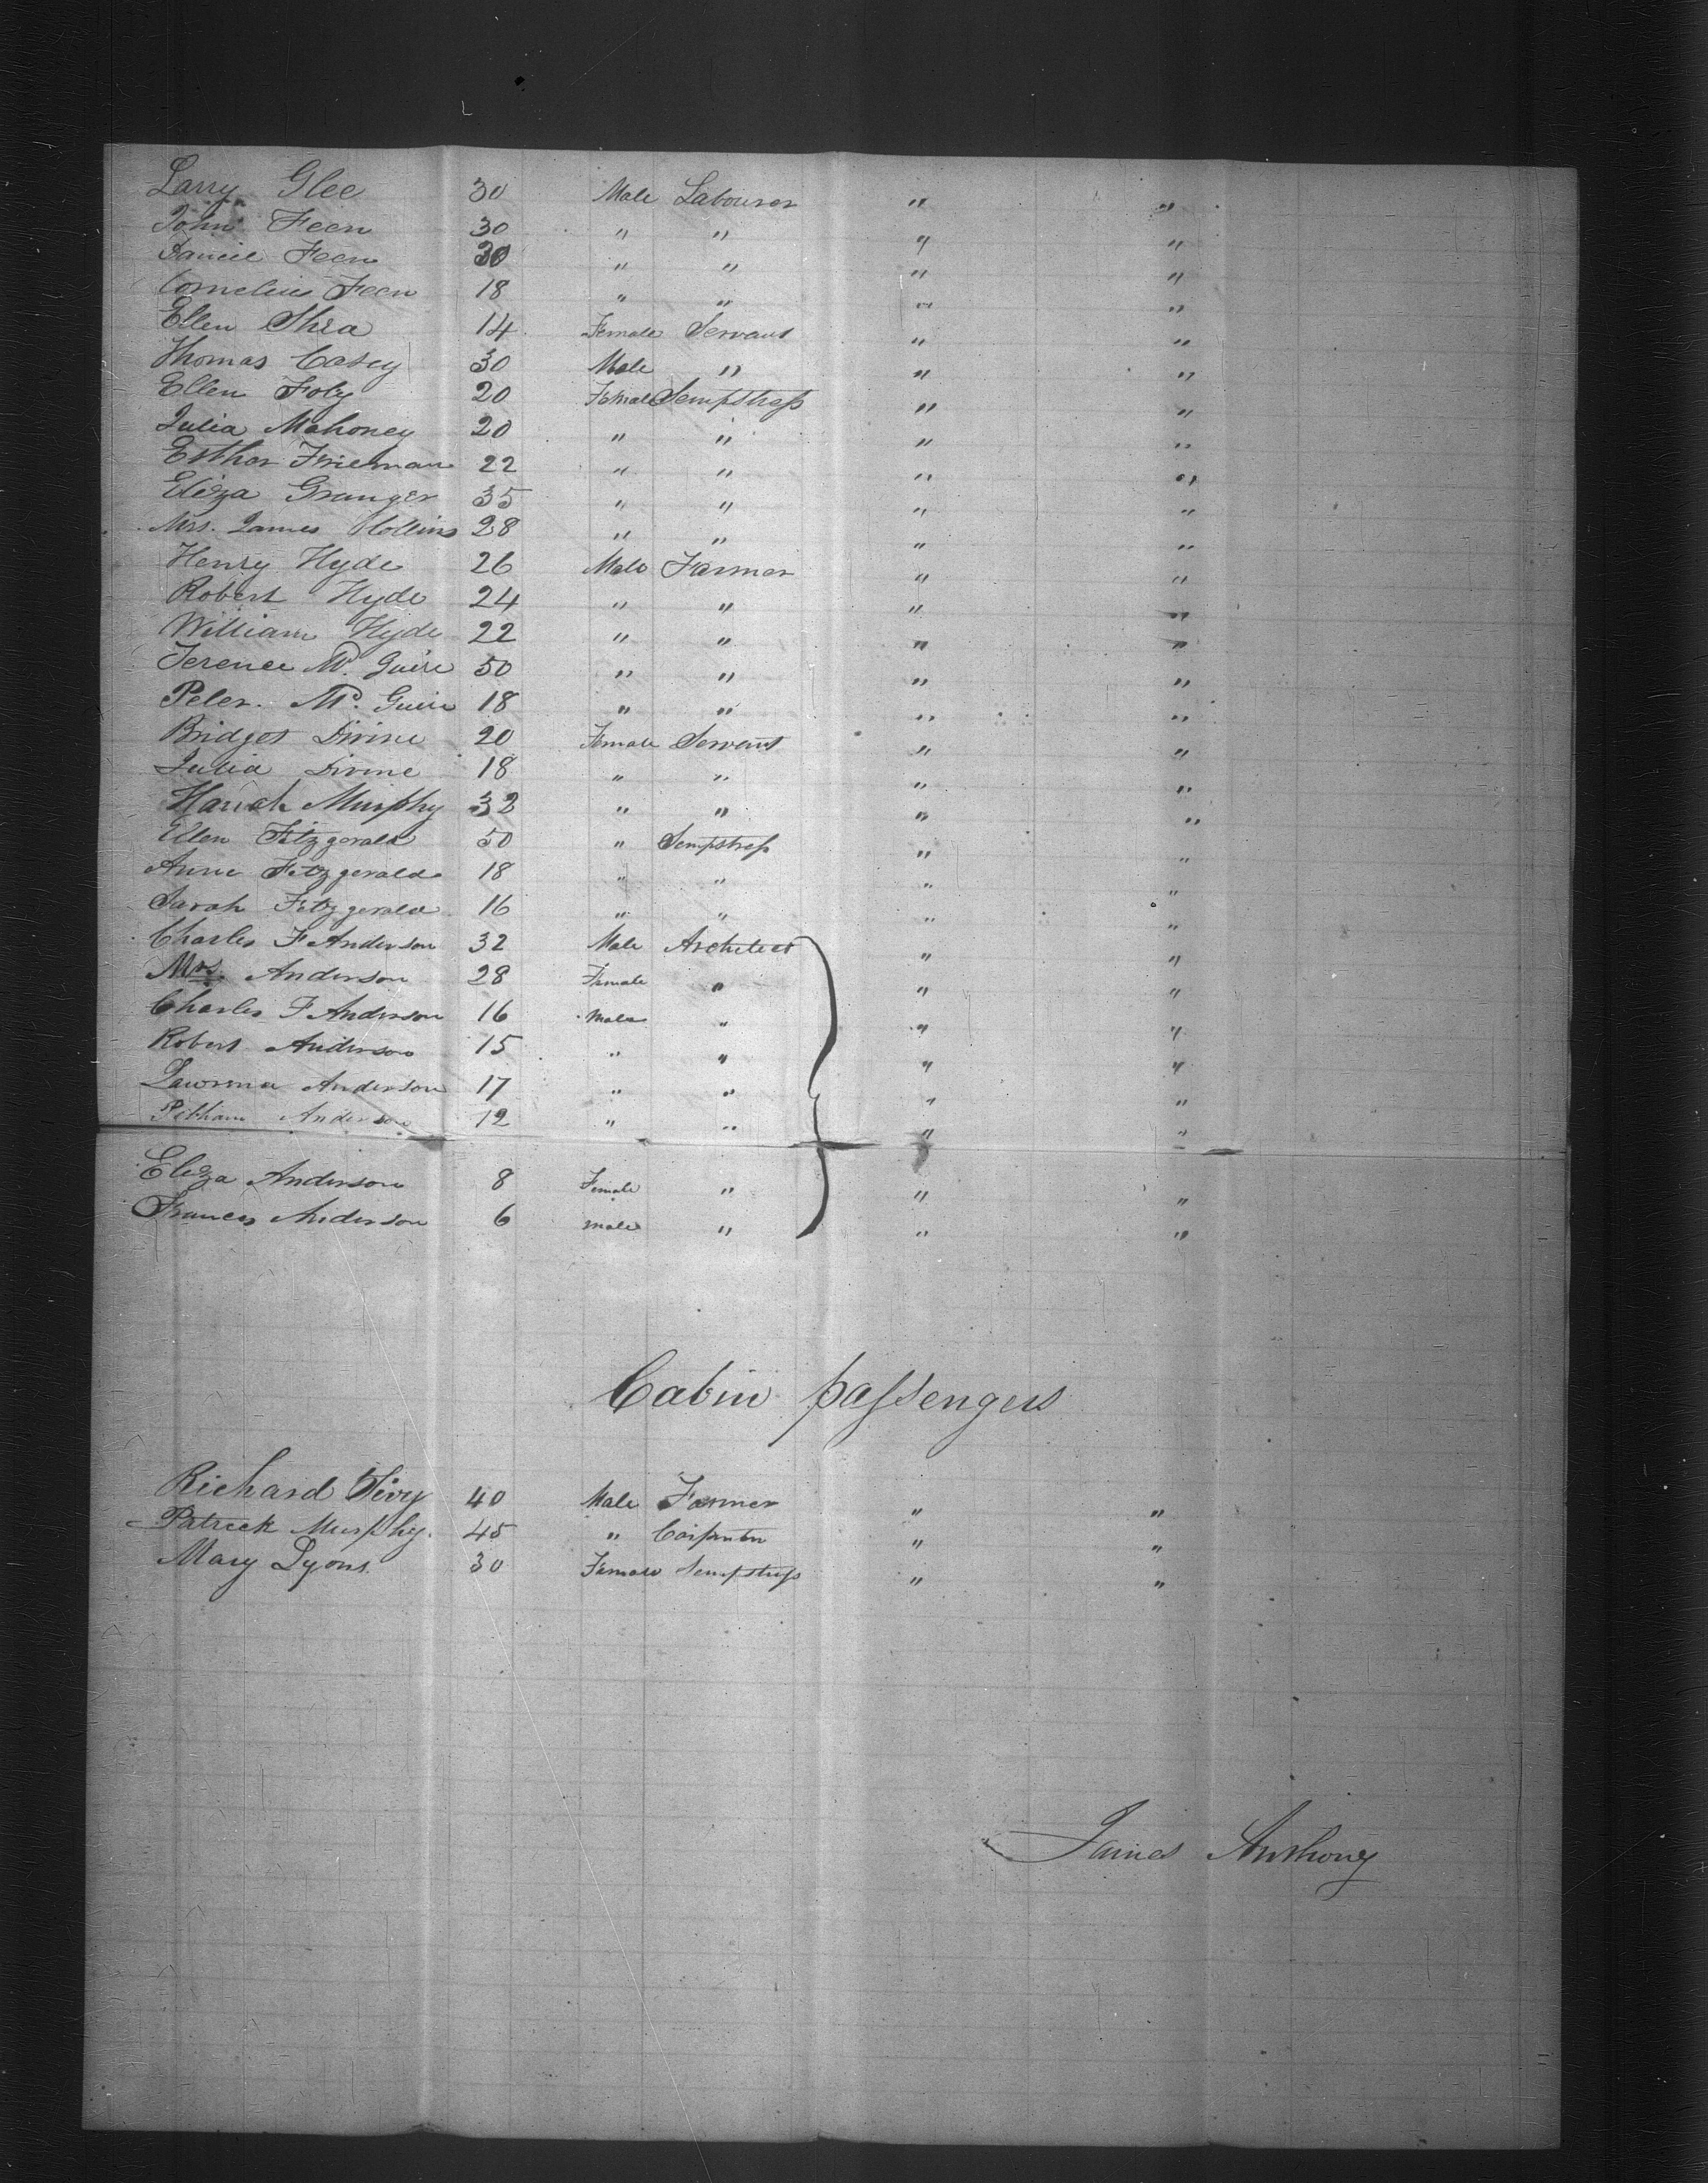 Larry Glee 30 Male Labourer " "
John Feen 30 " " " "
Daniel Feen 30 " " " "
Cornelius Feen 18 " " " "
Ellen Shea 14 Female Servant " "
Thomas Casey 30 Male " " "
Ellen Foly 20 Female Sempstress " "
Julia Mahoney 20 " " " "
Esther Frieman 22 " " " "
Eliza Granger 35 " " " "
Mrs. James Collins 28 " " " "
Henry Hyde 26 Male Farmer " "
Robert Hyde 24 " " " "
William Hyde 22 " " " "
Terence Mc. Guire 50 " " " "
Peter Mc. Guire 18 " " " "
Bridget Divine 20 Female Servant " "
Julia Divine 18 " " " "
Mariah Murphy 32 " " " "
Ellen Fitzgerald 50 " Sempstress " "
Anne Fitzgerald 18 " " " "
Sarah Fitzgerald 16 " " " "
Charles F Anderson 32 Male Architect " "
Mrs. Anderson 28 Female " " "
Charles F Anderson 16 Male " " "
Robert Anderson 15 " " " "
Anderson 17 " " " "
Anderson 12 " " " "
Eliza Anderson 8 Female " " "
Frances Anderson 6 male " " "
Cabin passengers
Richard 40 Male Farmer " "
Patrick Murphy. 45 " Carpenter " "
Mary Lyons. 30 Female Sempstress " "
James Anthony